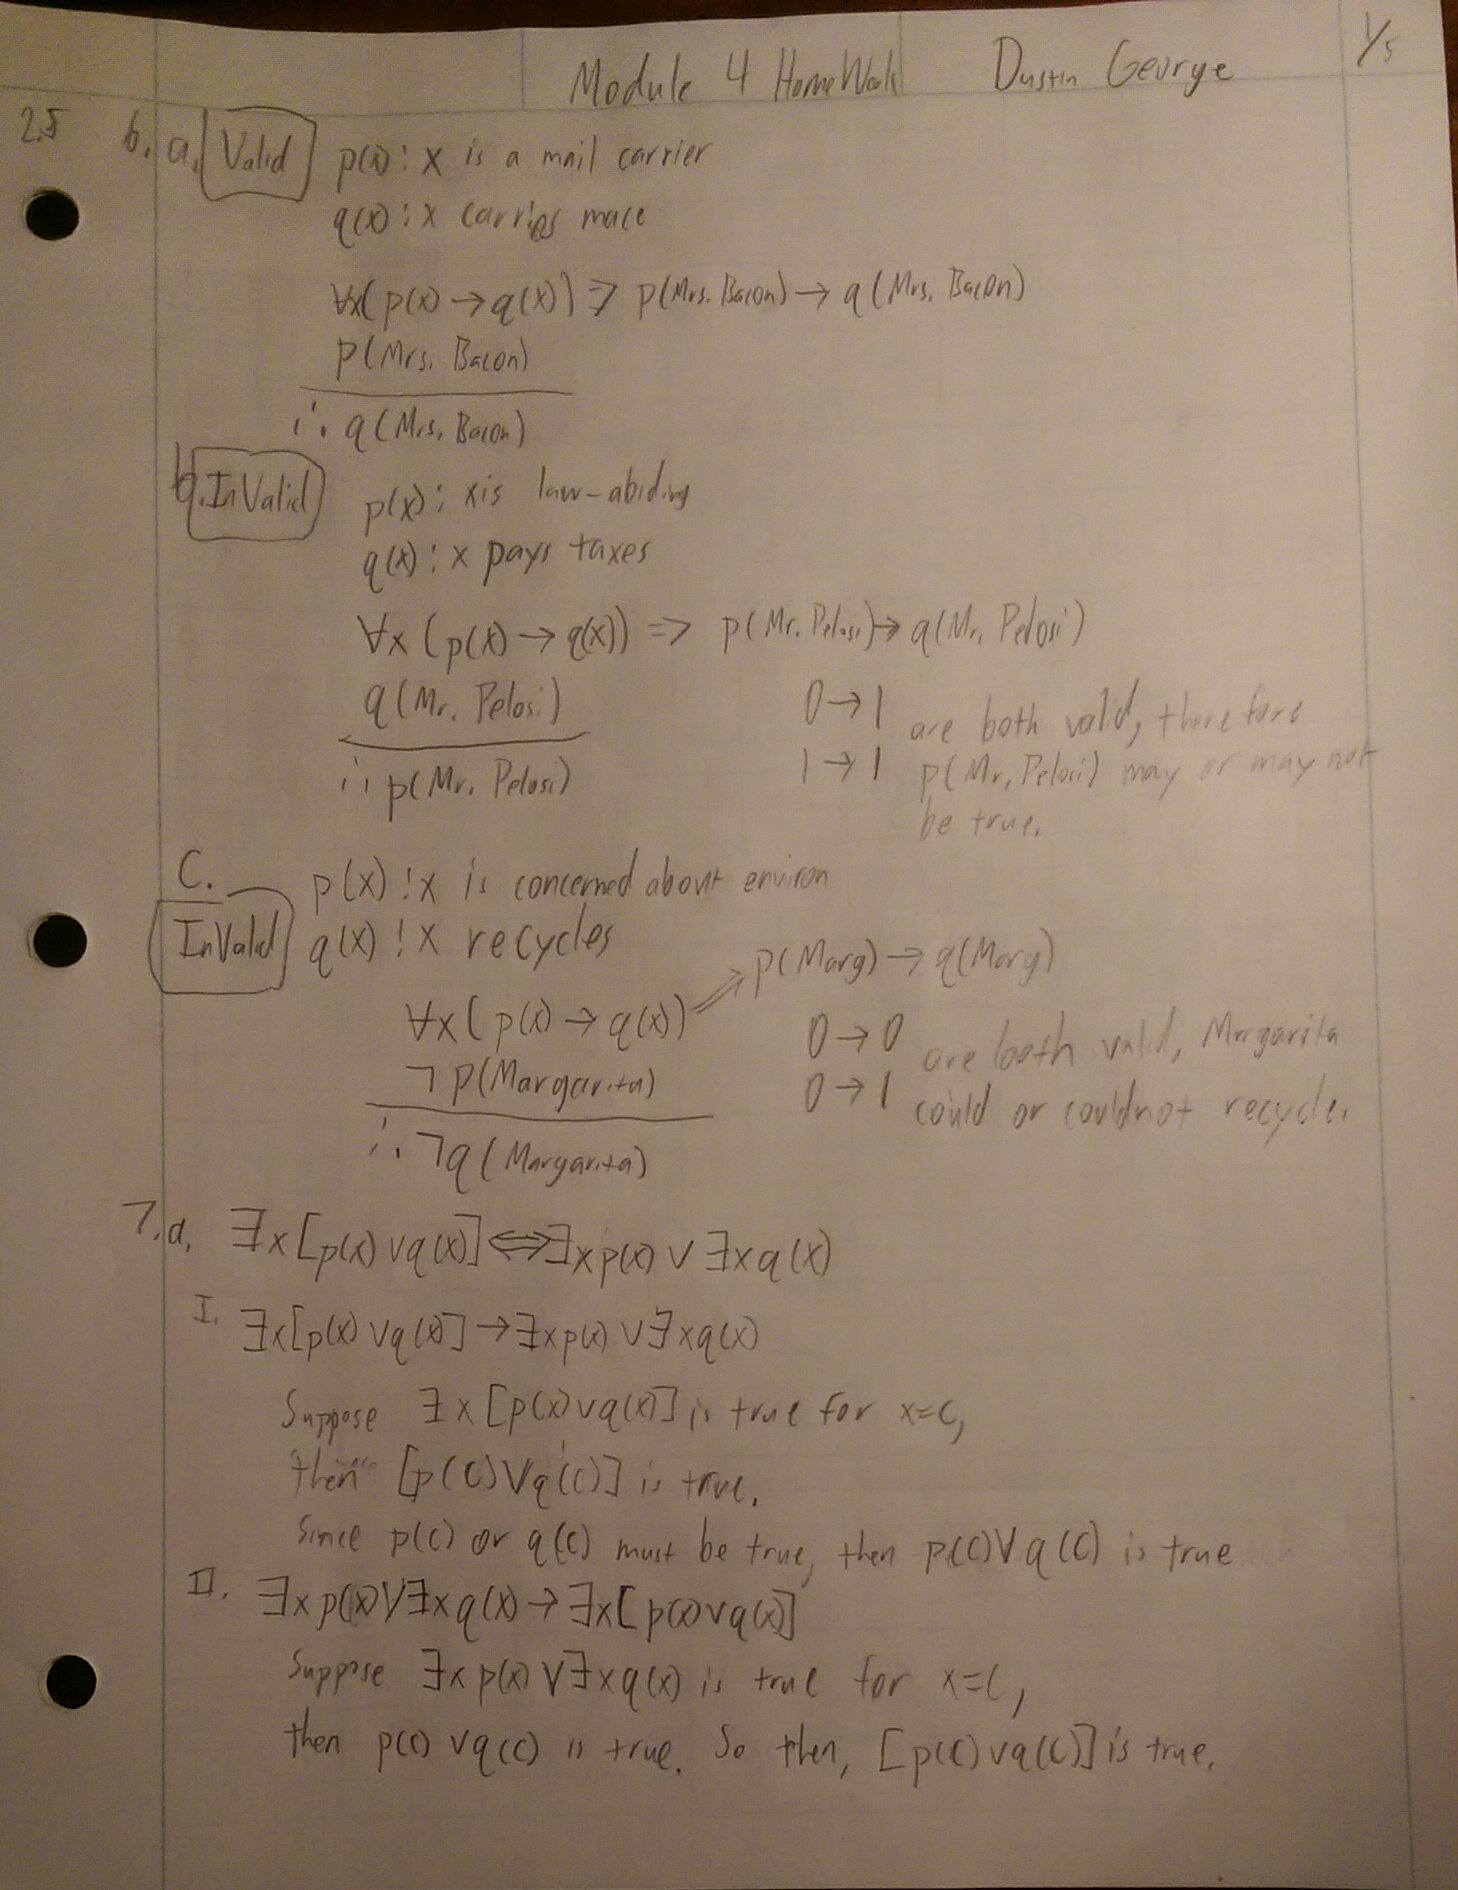 Module 4 HomeWork Dustin George 1/5
2.5 6. a. Valid p(x): x is a mail carrier
q(x): x carries mace
∀x(p(x) → q(x)) ⇒ p(Mrs. Bacon) → q(Mrs. Bacon)
p(Mrs. Bacon)
∴ q(Mrs. Bacon)
b. InValid p(x): x is law-abiding
q(x): x pays taxes
∀x (p(x) → q(x)) => p(Mr. Pelosi) → q(Mr. Pelosi)
q(Mr. Pelosi) 0→1 are both valid, therefore
∴ p(Mr. Pelosi) 1→1 p(Mr. Pelosi) may or may not
be true.
C. p(x): x is concerned about environ
InValid q(x): x recycles
p(Marg) → q(Marg)
∀x(p(x) → q(x)) ⇒
0→0 are both valid, Margarita
¬p(Margarita) 0→1 could or couldnot recycle.
∴ ¬q(Margarita)
7. a. ∃x[p(x) ∨ q(x)] ⟺ ∃x p(x) ∨ ∃x q(x)
I. ∃x[p(x) ∨ q(x)] → ∃x p(x) ∨ ∃x q(x)
Suppose ∃x[p(x) ∨ q(x)] is true for x=c,
then [p(c) ∨ q(c)] is true.
Since p(c) or q(c) must be true, then p(c) ∨ q(c) is true
II. ∃x p(x) ∨ ∃x q(x) → ∃x[p(x) ∨ q(x)]
Suppose ∃x p(x) ∨ ∃x q(x) is true for x=c,
then p(c) ∨ q(c) is true. So then, [p(c) ∨ q(c)] is true.